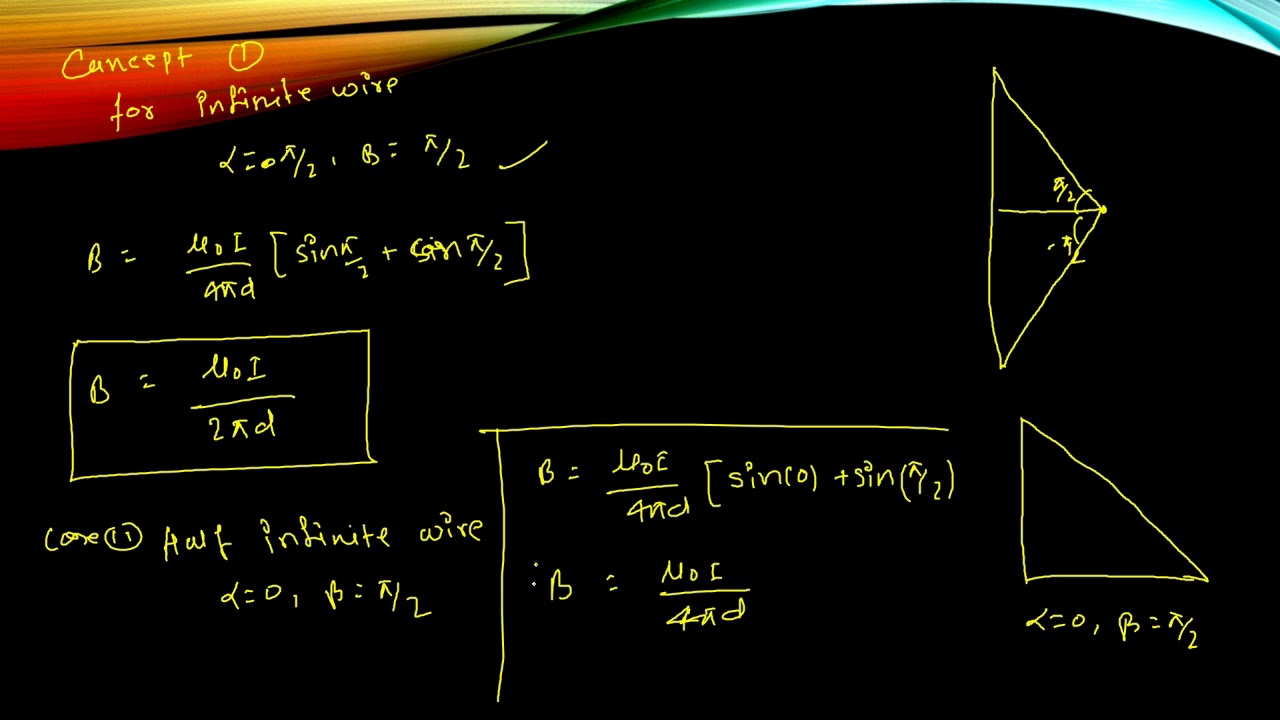 Concept ①
for infinite wire
α = π/2, B = π/2 ✓
B = μ₀I/4πd [sin π/2 + sin π/2]
B = μ₀I/2πd
Case ② Half infinite wire
α=0, β = π/2
B = μ₀I/4πd [sin(0) + sin(π/2)
∴ B = μ₀I/4πd
π/2
-π/2
α=0, β = π/2